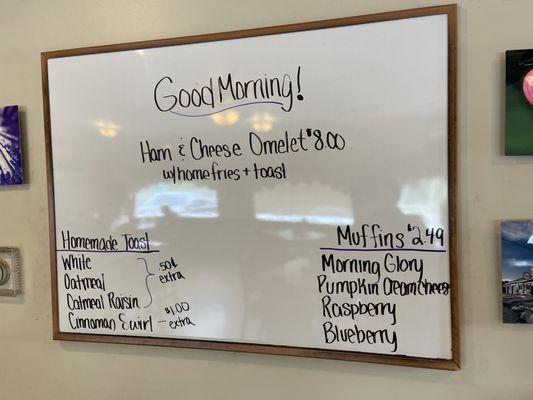 Good Morning!
Ham & Cheese Omelet $8.00
w/ homefries + toast
Homemade Toast
White
Oatmeal
Oatmeal Raisin
50¢
extra
Cinnaman Swirl - $1.00
extra
Muffins $2.49
Morning Glory
Pumpkin Cream Cheese
Raspberry
Blueberry